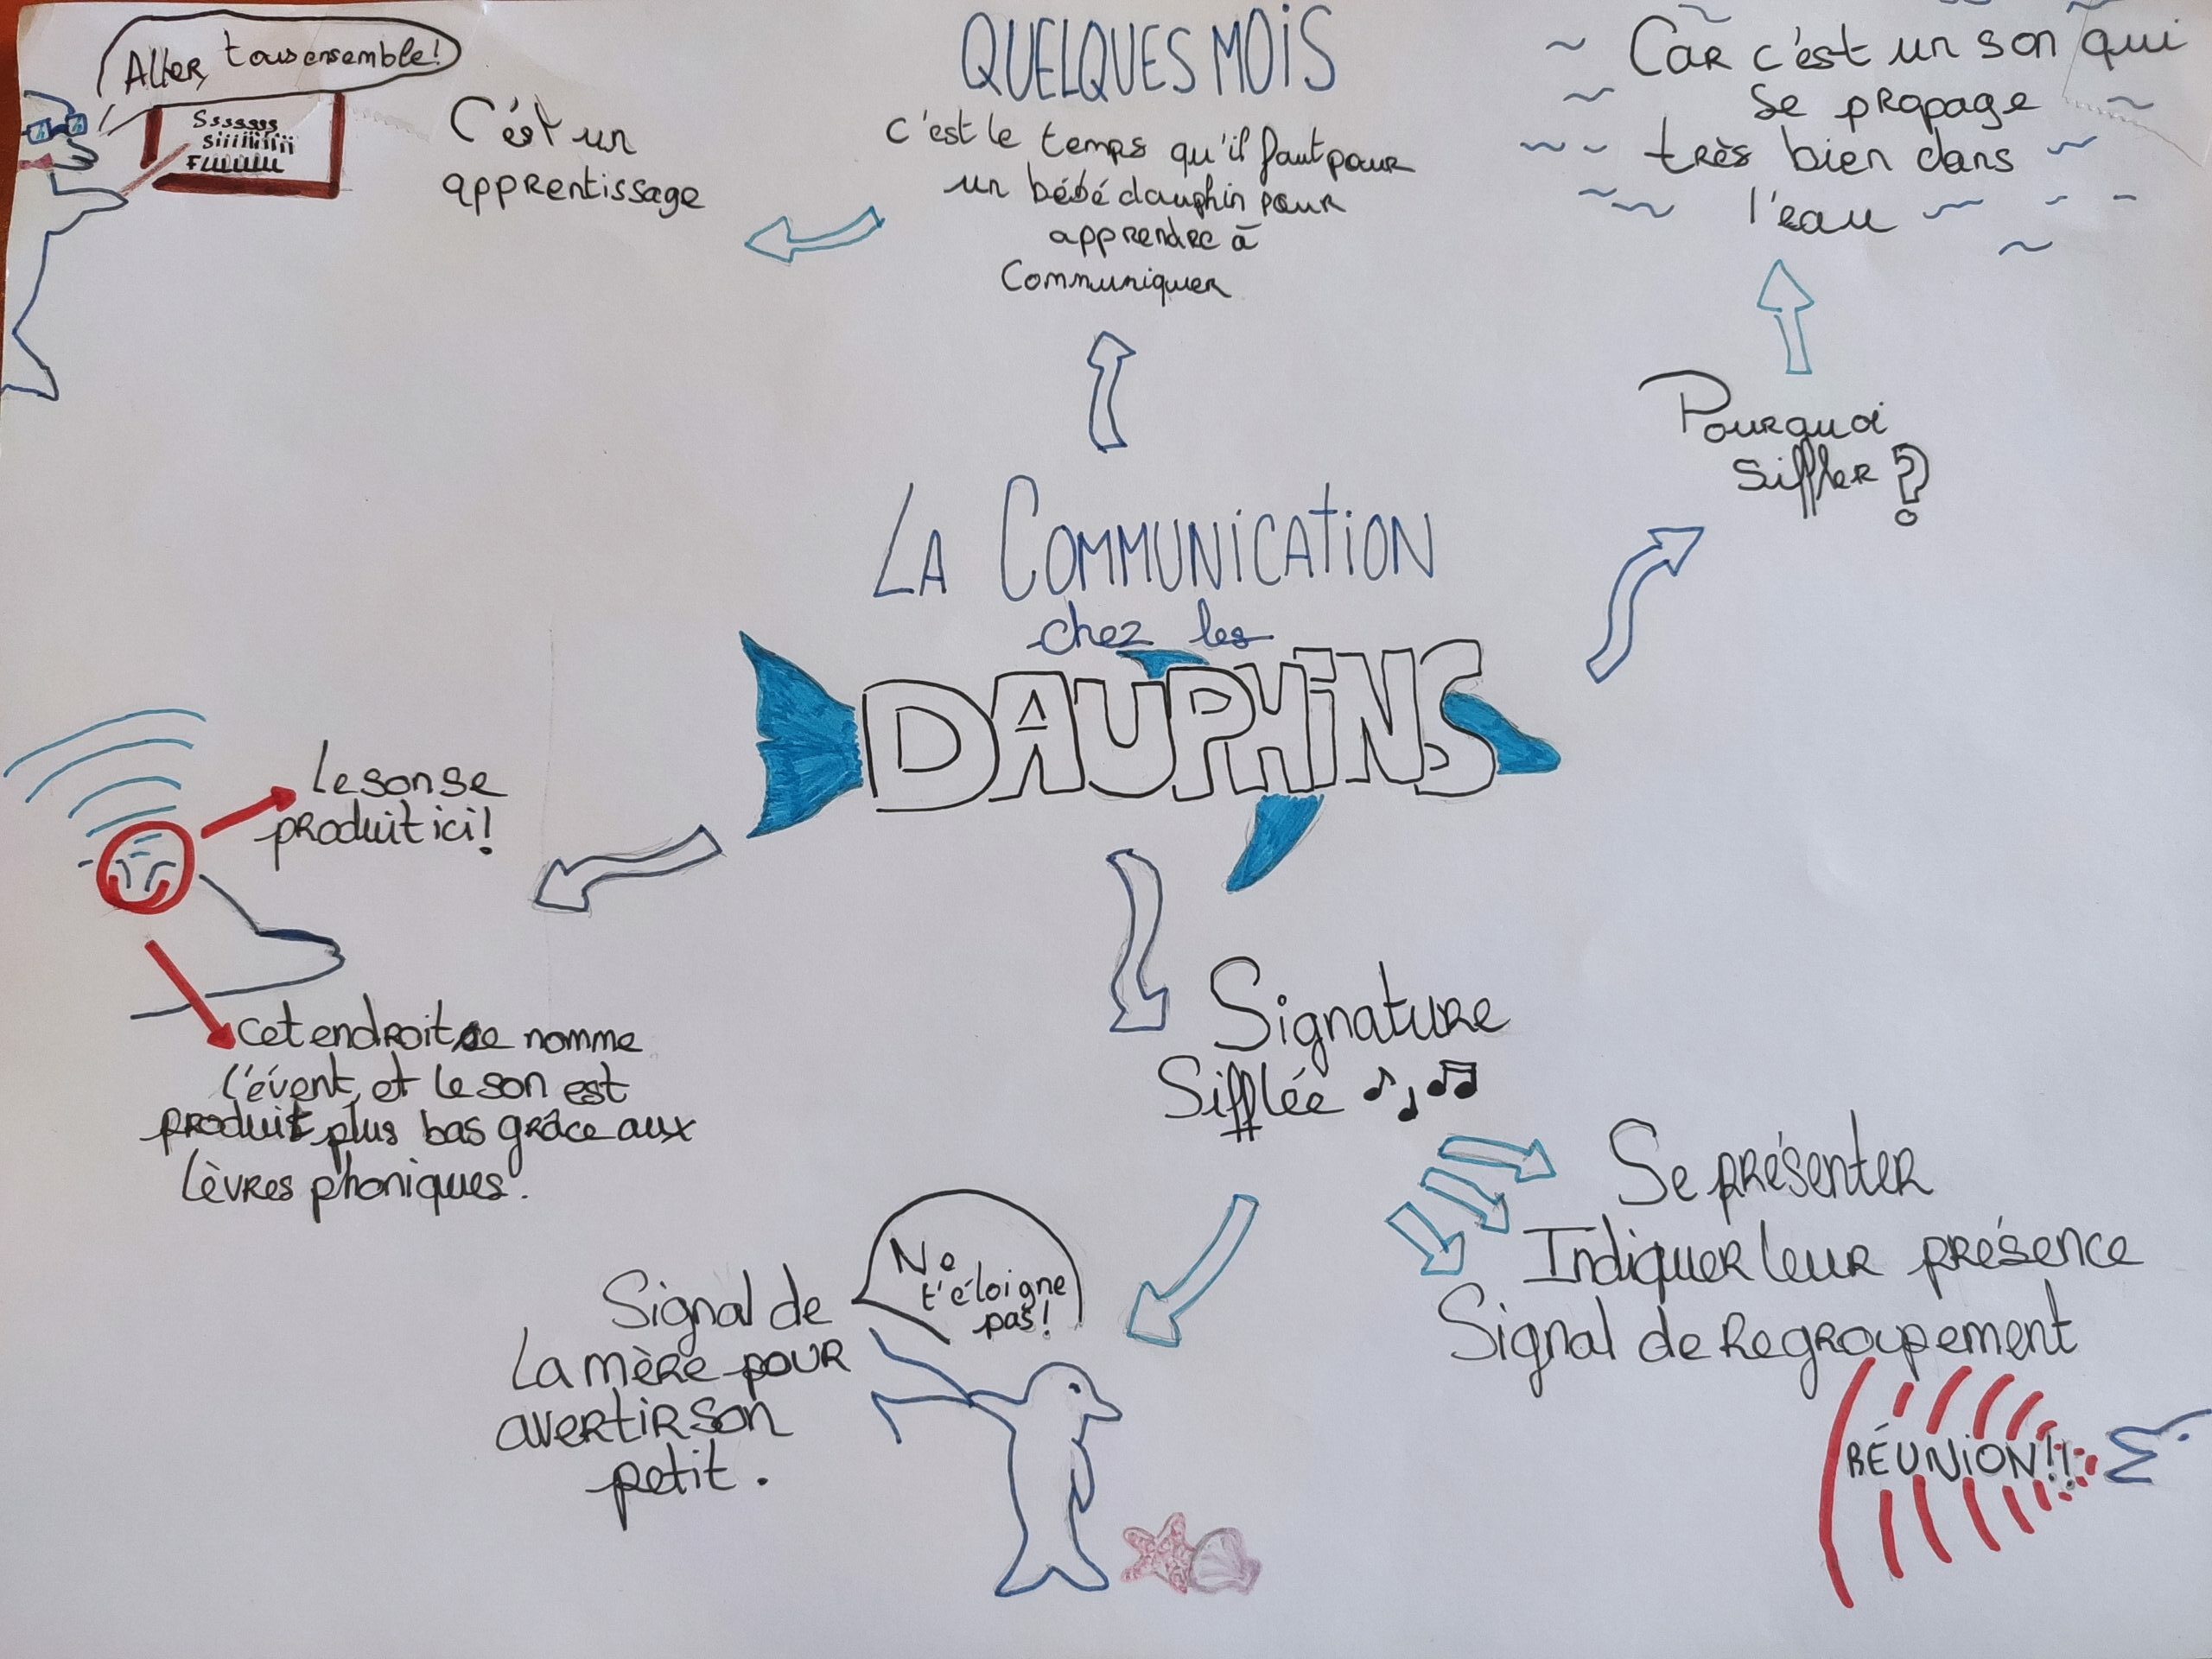 Aller, tous ensemble!
Sssssss
Siiiiiiiii
Fluuuuu
C'est un
apprentissage
QUELQUES MOIS
C'est le temps qu'il faut pour
un bébé dauphin pour
apprendre à
Communiquer
Car c'est un son qui
Se propage
très bien dans
l'eau
Pourquoi
Siffler ?
LA COMMUNICATION
chez les
DAUPHINS
Le son se
produit ici!
Cet endroit se nomme
l'évent, et le son est
produit plus bas grâce aux
lèvres phoniques.
Signature
Sifflée
Se présenter
Indiquer leur présence
Signal de Regroupement
RÉUNION!!
Signal de
La mère pour
avertir son
petit.
Ne
t'éloigne
pas!